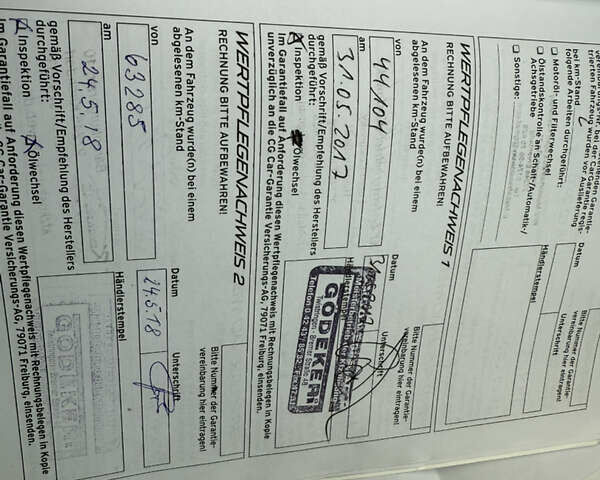 trierten Fahrzeug wurden vor Auslieferung
bei km-Stand
folgende Arbeiten durchgeführt:
❑ Motoröl- und Filterwechsel
❑ Ölstandskontrolle an Schalt-/Automatik-/
Achsgetriebe
❑ Sonstige:
Datum
Bitte Nummer der Garantie-
vereinbarung hier eintragen!
Unterschrift
Händlerstempel
WERTPFLEGENACHWEIS 1
RECHNUNG BITTE AUFBEWAHREN!
An dem Fahrzeug wurde(n) bei einem
abgelesenen km-Stand
von
44104
am
31.05.2017
gemäß Vorschrift/Empfehlung des Herstellers
durchgeführt:
Inspektion
Ölwechsel
Im Garantiefall auf Anforderung diesen Wertpflegenachweis mit Rechnungsbelegen in Kopie
unverzüglich an die CG Car-Garantie Versicherungs-AG, 79071 Freiburg, einsenden.
Bitte Nummer der Garantie-
vereinbarung hier eintragen!
Datum
Unterschrift
Händlerstempel
GÖDEKE
WERTPFLEGENACHWEIS 2
RECHNUNG BITTE AUFBEWAHREN!
An dem Fahrzeug wurde(n) bei einem
abgelesenen km-Stand
von
63285
am
24.5.18
gemäß Vorschrift/Empfehlung des Herstellers
durchgeführt:
Inspektion
Ölwechsel
Im Garantiefall auf Anforderung diesen Wertpflegenachweis mit Rechnungsbelegen in Kopie
CG Car-Garantie Versicherungs-AG, 79071 Freiburg, einsenden.
Bitte Nummer der Garantie-
vereinbarung hier eintragen!
Datum
24.5.18
Unterschrift
Händlerstempel